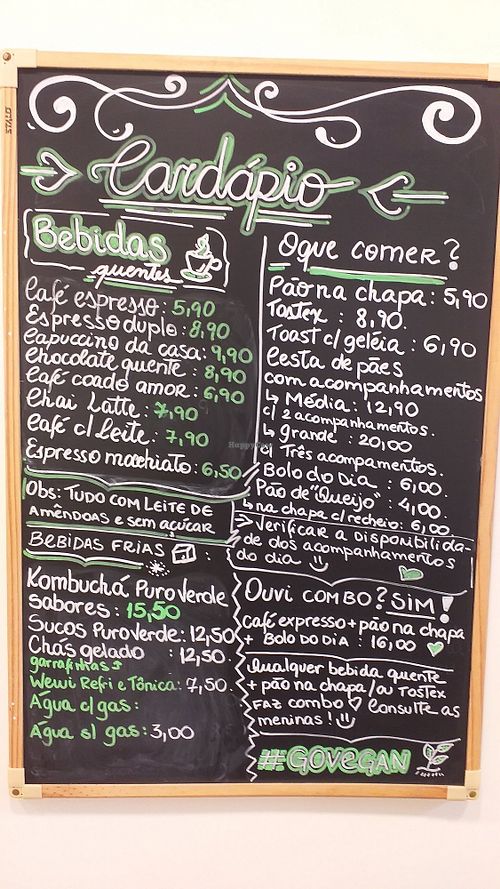 STALO
Cardápio
Bebidas
quentes
Café espresso: 5,90
Espresso duplo: 8,90
Capuccino da casa: 9,90
Chocolate quente: 8,90
Café coado amor: 6,90
Chai Latte: 7,90
Café c/ Leite: 7,90
Espresso macchiato: 6,50
Obs: TUDO COM LEITE DE
AMÊNDOAS E SEM AÇÚCAR
BEBIDAS FRIAS :
Kombuchá PuroVerde
sabores: 15,50
Sucos PuroVerde: 12,50
Chás gelado : 12,50
garrafinhas
Wewi Refri e Tônica: 7,50
Água c/ gás:
Água s/ gas: 3,00
Oque comer?
Pão na chapa: 5,90
Tostex : 8,90
Toast c/ geléia : 6,90
Cesta de pães
com acompanhamentos
↳ Média: 12,90
c/ 2 acompanhamentos.
↳ Grande : 20,00
c/ Três acompamentos.
Bolo do Dia : 6,00
Pão de "Queijo" : 4,00
↳ na chapa c/ recheio: 6,00
→ Verificar a disponibilida-
de dos acompanhamentos
do dia
Ouvi COMBO? SIM!
Café expresso + pão na chapa
+ BOLO DO DIA : 16,00
Qualquer bebida quente
+ pão na chapa /ou TOSTEX
FAZ combo Consulte as
meninas!
#GOVEGAN
HappyCow